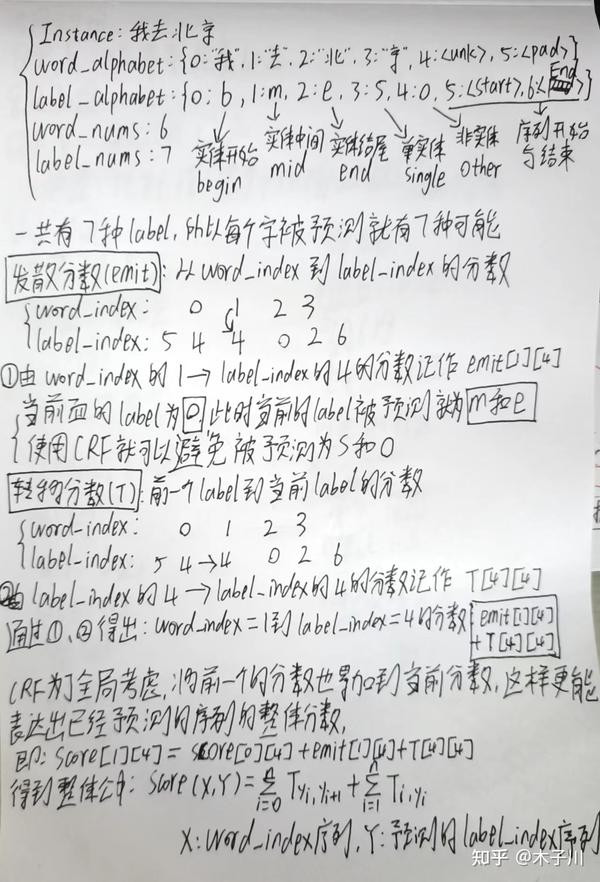 Instance: 我去北京
word_alphabet: {0:"我", 1:"去", 2:"北", 3:"京", 4:<unk>, 5:<pad>}
label_alphabet: {0: b, 1:m, 2: e, 3: S, 4: O, 5:<start>, 6:<End>}
word_nums: 6
label_nums: 7
实体开始 实体中间 实体结尾 单实体 非实体 序列开始
begin mid end single other 与结束
一共有7种label, 所以每个字被预测就有7种可能
发散分数(emit): 从word_index到label_index的分数
word_index: 0 1 2 3
label_index: 5 4 4 0 2 6
①由word_index的1→label_index的4的分数记作emit[1][4]
当前面的label为 此时当前的label被预测就为m和e
使用CRF就可以避免被预测为S和O
转移分数(T): 前一个label到当前label的分数
word_index: 0 1 2 3
label_index: 5 4→4 0 2 6
②由label_index的4→label_index的4的分数记作T[4][4]
通过①、②得出: word_index=1到label_index=4的分数: emit[1][4]
+T[4][4]
CRF为了全局考虑, 将前一个的分数也累加到当前分数, 这样更能
表达出已经预测的序列的整体分数,
即: score[1][4] = score[0][4]+emit[1][4]+T[4][4]
得到整体公式: Score(X,Y)=∑ⁿᵢ₌₀ Tyᵢ,yᵢ₊₁ + ∑ⁿᵢ₌₁ Tᵢ,yᵢ
X: word_index序列, Y: 预测的label_index序列
知乎 @木子川